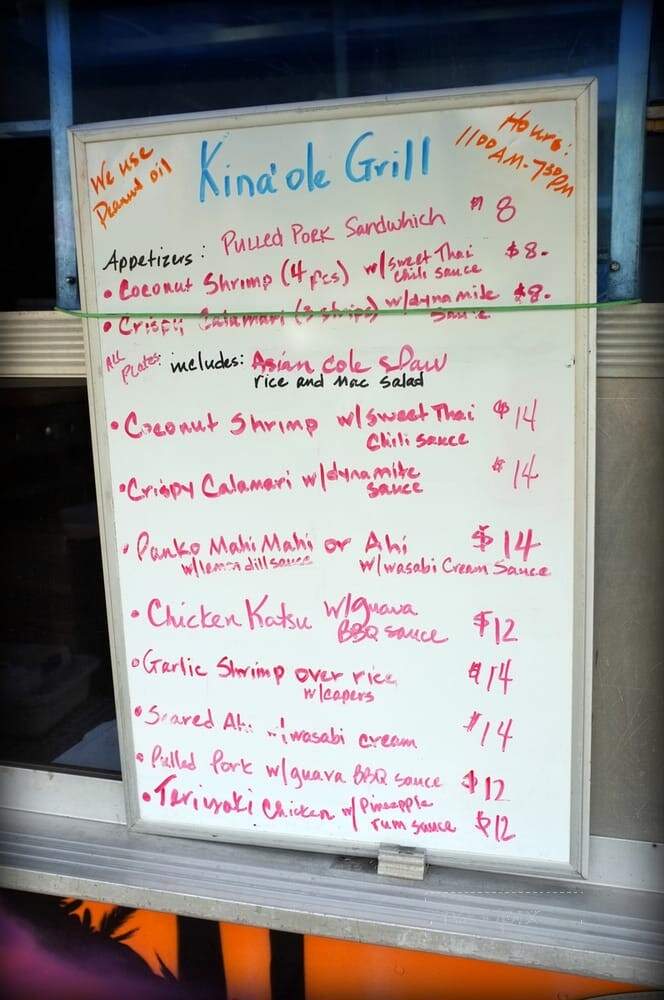 We use
Peanut oil
Kina'ole Grill
Hours:
1100 AM-730 PM
Pulled Pork Sandwhich $8
Appetizers:
• Coconut Shrimp (4 pcs) w/sweet Thai $8-
chili sauce
• Crispy Calamari (3 strips) w/dynamite $8-
sauce
All
Plates: includes: Asian Cole Slaw
rice and Mac Salad
• Coconut Shrimp w/sweet Thai $14
Chili sauce
• Crispy Calamari w/dynamite $14
sauce
• Panko Mahi Mahi or Ahi $14
w/lemon dill sauce w/wasabi Cream Sauce
• Chicken Katsu w/guava
BBQ sauce $12
• Garlic Shrimp over rice $14
w/capers
• Seared Ahi w/wasabi cream $14
• Pulled Pork w/guava BBQ sauce $12
• Teriyaki Chicken w/Pineapple
rum sauce $12